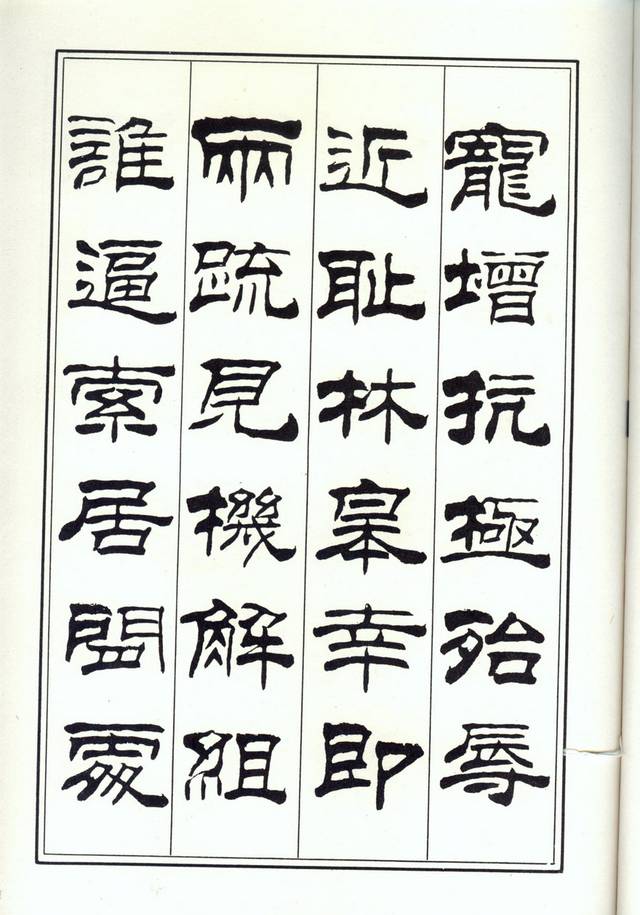 寵增抗極殆辱
近恥林皋幸即
兩疏見機解組
誰逼索居閒處